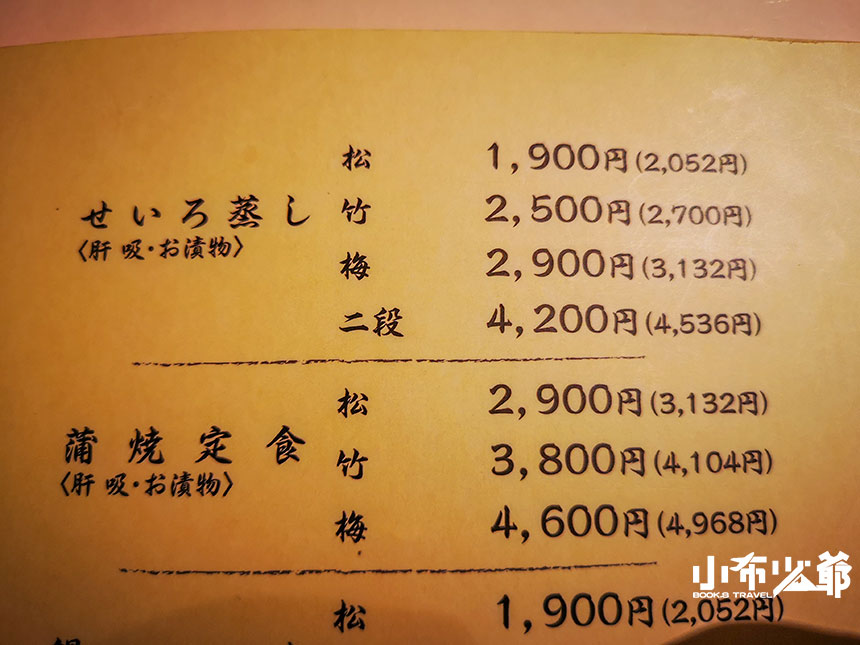 松 1,900円(2,052円)
せいろ蒸し 竹 2,500円(2,700円)
〈肝 吸・お漬物〉
梅 2,900円(3,132円)
二段 4,200円(4,536円)
松 2,900円(3,132円)
蒲焼定食 竹 3,800円(4,104円)
〈肝 吸・お漬物〉
梅 4,600円(4,968円)
小布少爺
BOOK.S TRAVEL
松 1,900円(2,052円)